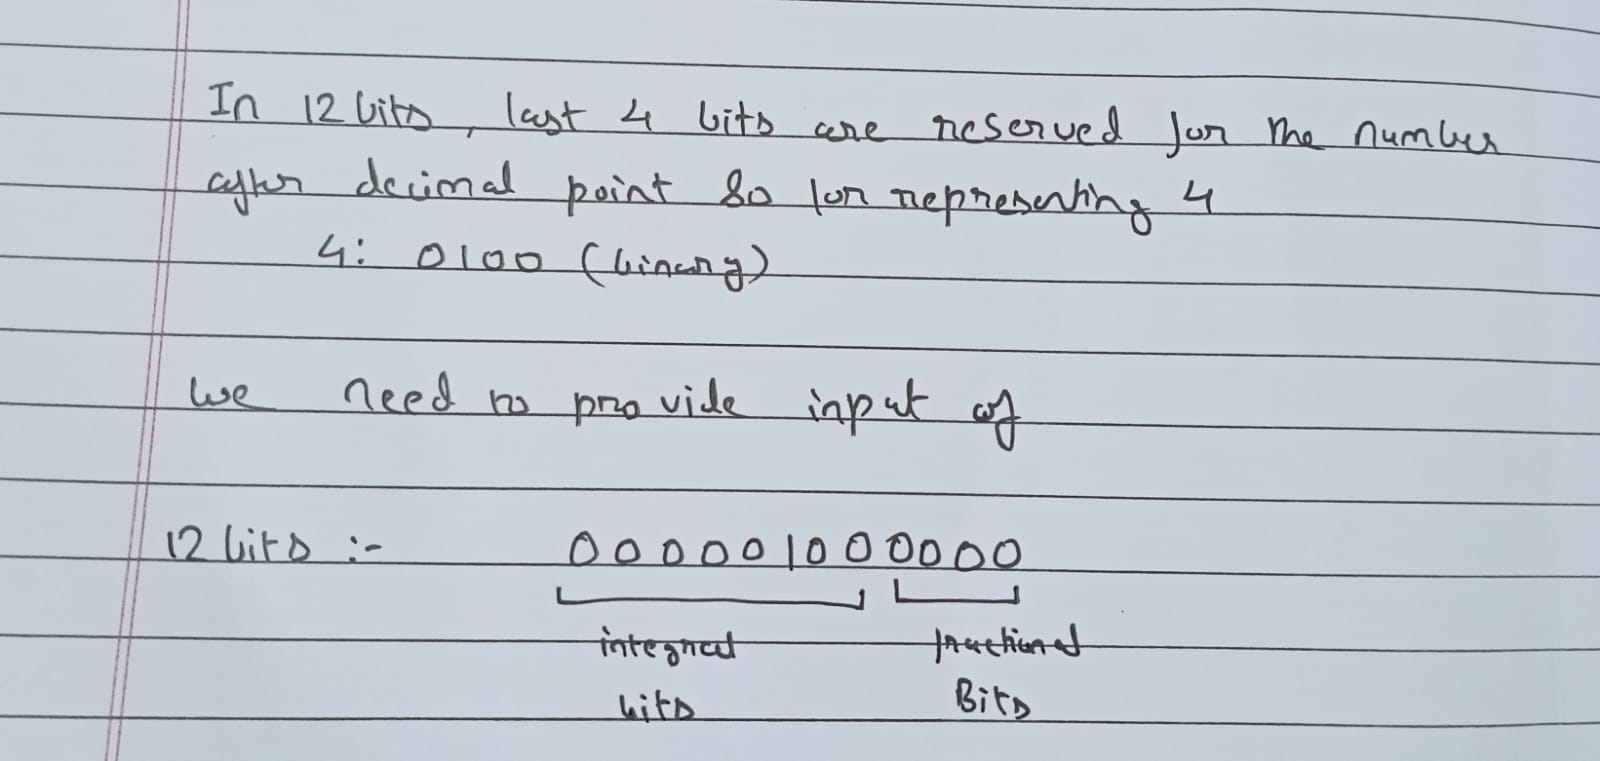 In 12 bits, last 4 bits are reserved for the number
after decimal point so for representing 4
4: 0100 (binary)
we need to provide input of
12 bits :- 000001000000
integral fractional
bits Bits